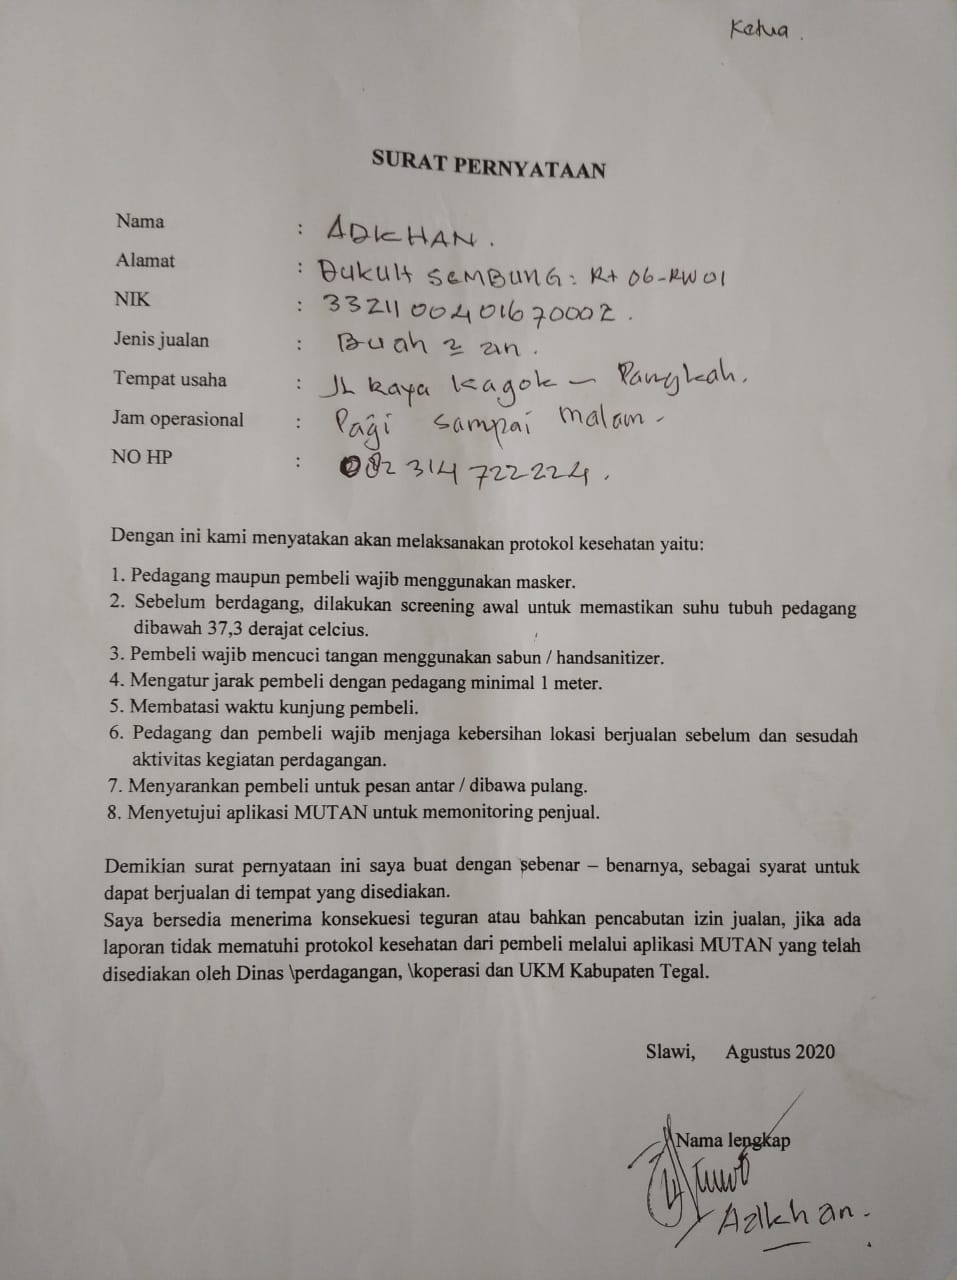 Ketua .
SURAT PERNYATAAN
Nama : ADKHAN .
Alamat : Dukuh SEMBUNG : Rt 06 - RW 01
NIK : 3321100401670002 .
Jenis jualan : Buah 2 an .
Tempat usaha : JL Raya Kagok - Pangkah .
Jam operasional : Pagi sampai malam -
NO HP : 082 314 722224 .
Dengan ini kami menyatakan akan melaksanakan protokol kesehatan yaitu:
1. Pedagang maupun pembeli wajib menggunakan masker.
2. Sebelum berdagang, dilakukan screening awal untuk memastikan suhu tubuh pedagang
dibawah 37,3 derajat celcius.
3. Pembeli wajib mencuci tangan menggunakan sabun / handsanitizer.
4. Mengatur jarak pembeli dengan pedagang minimal 1 meter.
5. Membatasi waktu kunjung pembeli.
6. Pedagang dan pembeli wajib menjaga kebersihan lokasi berjualan sebelum dan sesudah
aktivitas kegiatan perdagangan.
7. Menyarankan pembeli untuk pesan antar / dibawa pulang.
8. Menyetujui aplikasi MUTAN untuk memonitoring penjual.
Demikian surat pernyataan ini saya buat dengan sebenar – benarnya, sebagai syarat untuk
dapat berjualan di tempat yang disediakan.
Saya bersedia menerima konsekuesi teguran atau bahkan pencabutan izin jualan, jika ada
laporan tidak mematuhi protokol kesehatan dari pembeli melalui aplikasi MUTAN yang telah
disediakan oleh Dinas \perdagangan, \koperasi dan UKM Kabupaten Tegal.
Slawi, Agustus 2020
Nama lengkap
Adkhan .